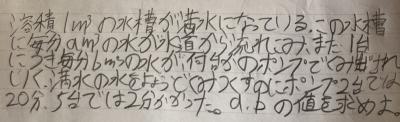 溶積1m³の水槽が満水になっている。この水槽
に毎分am³の水が水道から流れこみ、また1台
につき毎分bm³の水が何台かのポンプでくみ出され
ていく。満水の水をちょうどくみつくすのにポンプ2台では
20分、5台では2分かかった。a.bの値を求めよ。